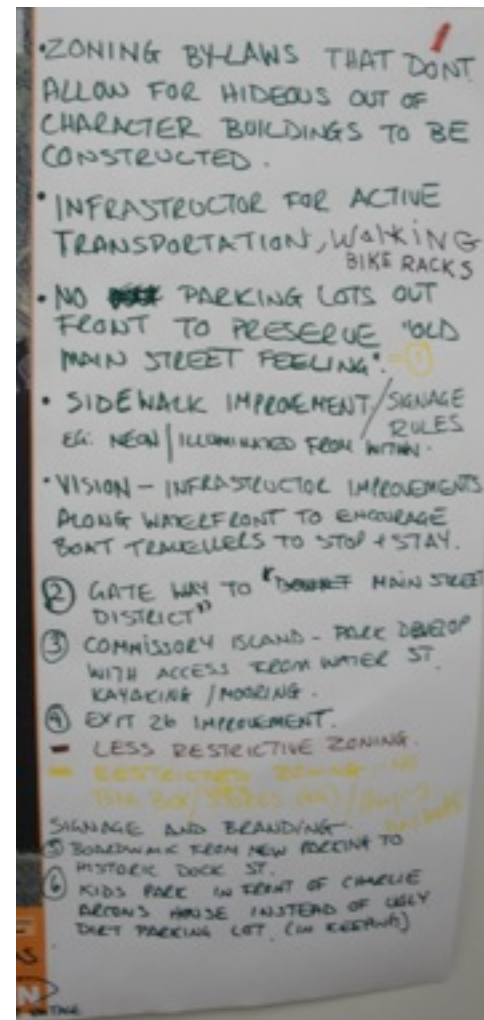 •ZONING BY-LAWS THAT DONT
ALLOW FOR HIDEOUS OUT OF
CHARACTER BUILDINGS TO BE
CONSTRUCTED.
• INFRASTRUCTOR FOR ACTIVE
TRANSPORTATION, WALKING
BIKE RACKS
• NO PARKING LOTS OUT
FRONT TO PRESERVE "OLD
MAIN STREET FEELING". - ①
• SIDEWALK IMPROVEMENT/SIGNAGE
RULES
EG. NEON/ILLUMINATED FROM WITHIN.
• VISION - INFRASTRUCTOR IMPROVEMENTS
ALONG WATERFRONT TO ENCOURAGE
BOAT TRAVELLERS TO STOP + STAY.
② GATE WAY TO " MAIN STREET
DISTRICT"
③ COMMISSORY ISLAND - PARK DEVELOP
WITH ACCESS FROM WATER ST.
KAYAKING / MOORING.
④ EXIT 26 IMPROVEMENT.
- LESS RESTRICTIVE ZONING.
- RESTRICTED ZONING - NO
BIG BOX/
SIGNAGE AND BRANDING.
⑤ BOARDWALK FROM NEW PARKING TO
HISTORIC DOCK ST.
⑥ KIDS PARK IN FRONT OF CHARLIE
HOUSE INSTEAD OF UGLY
DIRT PARKING LOT. (IN KEEPING)